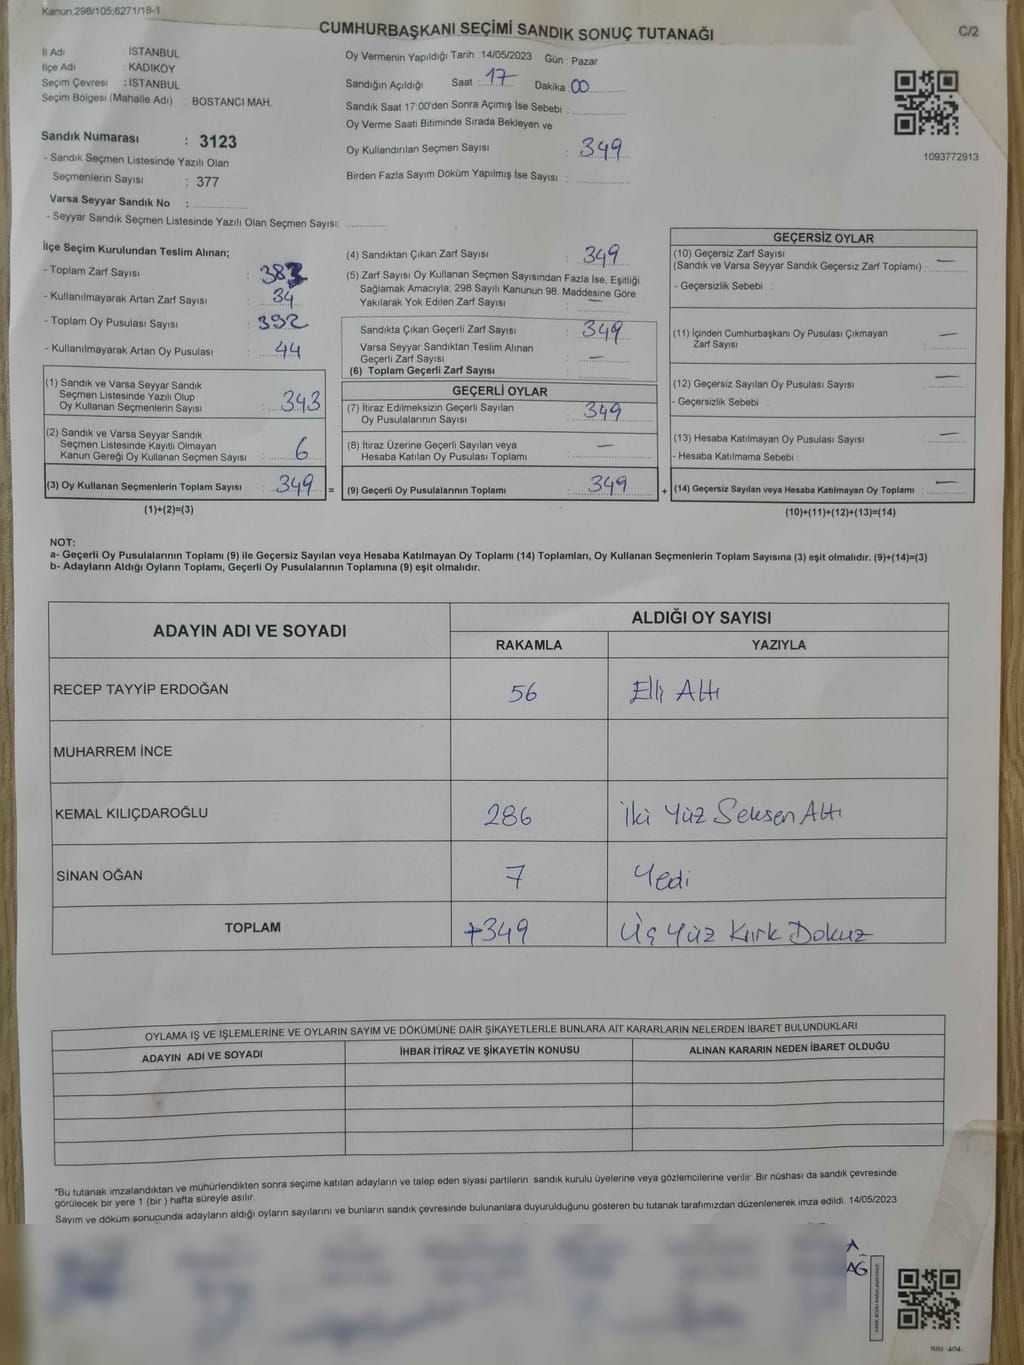 Kanun,298/105,6271/18-1
CUMHURBAŞKANI SEÇİMİ SANDIK SONUÇ TUTANAĞI
C/2
İl Adı : İSTANBUL
İlçe Adı : KADIKÖY
Seçim Çevresi : İSTANBUL
Seçim Bölgesi (Mahalle Adı) : BOSTANCI MAH.
Oy Vermenin Yapıldığı Tarih : 14/05/2023 Gün : Pazar
Sandığın Açıldığı Saat : 17 Dakika : 00
Sandık Saat 17:00'den Sonra Açımış İse Sebebi :
Oy Verme Saati Bitiminde Sırada Bekleyen ve
Oy Kullandırılan Seçmen Sayısı : 349
Birden Fazla Sayım Döküm Yapılmış İse Sayısı :
1093772913
Sandık Numarası : 3123
- Sandık Seçmen Listesinde Yazılı Olan
Seçmenlerin Sayısı : 377
Varsa Seyyar Sandık No :
- Seyyar Sandık Seçmen Listesinde Yazılı Olan Seçmen Sayısı:
İlçe Seçim Kurulundan Teslim Alınan;
- Toplam Zarf Sayısı : 383
- Kullanılmayarak Artan Zarf Sayısı : 34
- Toplam Oy Pusulası Sayısı : 392
- Kullanılmayarak Artan Oy Pusulası : 44
(1) Sandık ve Varsa Seyyar Sandık
Seçmen Listesinde Yazılı Olup
Oy Kullanan Seçmenlerin Sayısı : 343
(2) Sandık ve Varsa Seyyar Sandık
Seçmen Listesinde Kayıtlı Olmayan
Kanun Gereği Oy Kullanan Seçmen Sayısı : 6
(3) Oy Kullanan Seçmenlerin Toplam Sayısı : 349 =
(1)+(2)=(3)
(4) Sandıktan Çıkan Zarf Sayısı : 349
(5) Zarf Sayısı Oy Kullanan Seçmen Sayısından Fazla İse, Eşitliği
Sağlamak Amacıyla; 298 Sayılı Kanunun 98. Maddesine Göre
Yakılarak Yok Edilen Zarf Sayısı : —
Sandıkta Çıkan Geçerli Zarf Sayısı : 349
Varsa Seyyar Sandıktan Teslim Alınan
Geçerli Zarf Sayısı : —
(6) Toplam Geçerli Zarf Sayısı :
GEÇERLİ OYLAR
(7) İtiraz Edilmeksizin Geçerli Sayılan
Oy Pusulalarının Sayısı : 349
(8) İtiraz Üzerine Geçerli Sayılan veya
Hesaba Katılan Oy Pusulası Toplamı : —
(9) Geçerli Oy Pusulalarının Toplamı : 349 +
GEÇERSİZ OYLAR
(10) Geçersiz Zarf Sayısı
(Sandık ve Varsa Seyyar Sandık Geçersiz Zarf Toplamı) : —
- Geçersizlik Sebebi :
(11) İçinden Cumhurbaşkanı Oy Pusulası Çıkmayan
Zarf Sayısı : —
(12) Geçersiz Sayılan Oy Pusulası Sayısı : —
- Geçersizlik Sebebi :
(13) Hesaba Katılmayan Oy Pusulası Sayısı : —
- Hesaba Katılmama Sebebi :
(14) Geçersiz Sayılan veya Hesaba Katılmayan Oy Toplamı : —
(10)+(11)+(12)+(13)=(14)
NOT:
a- Geçerli Oy Pusulalarının Toplamı (9) ile Geçersiz Sayılan veya Hesaba Katılmayan Oy Toplamı (14) Toplamları, Oy Kullanan Seçmenlerin Toplam Sayısına (3) eşit olmalıdır. (9)+(14)=(3)
b- Adayların Aldığı Oyların Toplamı, Geçerli Oy Pusulalarının Toplamına (9) eşit olmalıdır.
ADAYIN ADI VE SOYADI
ALDIĞI OY SAYISI
RAKAMLA YAZIYLA
RECEP TAYYİP ERDOĞAN 56 Elli Altı
MUHARREM İNCE
KEMAL KILIÇDAROĞLU 286 İki Yüz Seksen Altı
SİNAN OĞAN 7 Yedi
TOPLAM +349 Üç Yüz Kırk Dokuz
OYLAMA İŞ VE İŞLEMLERİNE VE OYLARIN SAYIM VE DÖKÜMÜNE DAİR ŞİKAYETLERLE BUNLARA AİT KARARLARIN NELERDEN İBARET BULUNDUKLARI
ADAYIN ADI VE SOYADI İHBAR İTİRAZ VE ŞİKAYETİN KONUSU ALINAN KARARIN NEDEN İBARET OLDUĞU
*Bu tutanak imzalandıktan ve mühürlendikten sonra seçime katılan adayların ve talep eden siyasi partilerin sandık kurulu üyelerine veya gözlemcilerine verilir .Bir nüshası da sandık çevresinde
görülecek bir yere 1 (bir ) hafta süreyle asılır.
Sayım ve döküm sonucunda adayların aldığı oyların sayılarını ve bunların sandık çevresinde bulunanlara duyurulduğunu gösteren bu tutanak tarafımızdan düzenlenerek imza edildi. 14/05/2023
A
AĞ